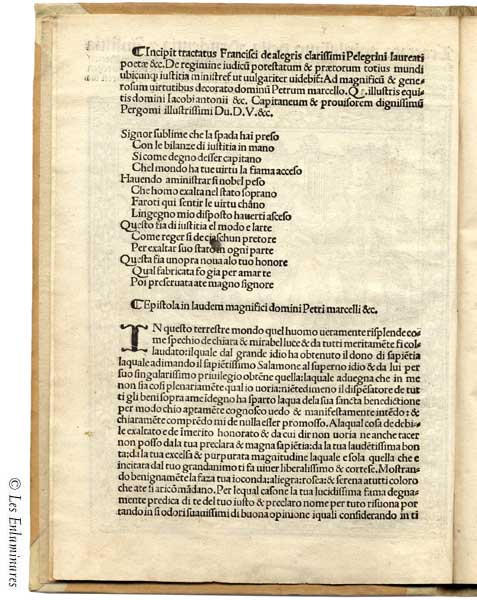 ¶Incipit tractatus Francisci de alegris clarissimi Pelegrini laureati
poetæ &c. De regimine iudicũ potestatum & prætorum totius mundi
ubicunqȝ iustitia ministret ut uulgariter uidebit: Ad magnificũ & gene-
rosum uirtutibus decorato dominũ Petrum marcello. Q. illustris equi-
tis domini Iacobi antonii &c. Capitaneum & prouisorem dignissimũ
Pergomi illustrissimi Du. D. V. &c.
Signor sublime che la spada hai preso
Con le bilanze di iustitia in mano
Si come degno desser capitano
Chel mondo ha tue uirtu la fiama acceso
Hauendo aministrar si nobel peso
Che homo exalta nel stato soprano
Faroti qui sentir le uirtu chãno
Lingegno mio disposto hauerti asceso
Questo fia di iustitia el modo e larte
Come reger si de ciaschun pretore
Per exaltar suo stato in ogni parte
Questa fia unopra noua alo tuo honore
Qual fabricata fo gia per amarte
Poi preseruata ate magno signore
¶Epistola in laudem magnifici domini Petri marcelli &c.
IN questo terrestre mondo quel huomo ueramente risplende co-
me spechio de chiara & mirabel luce & da tutti meritamẽte fi col-
laudato: ilquale dal grande idio ha obtenuto il dono di sapiẽtia
laquale adimando il sapiẽtissimo Salamone al superno idio & da lui per
suo singularissimo priuilegio obtẽne quella: laquale aduegna che in me
non sia cosi plenariamẽte qual io uoria: niẽtedimeno il dispẽsatore de tut
ti gli beni sopra ame idegno ha sparto laqua dela sua sancta benedictione
per modo chio aptamẽte cognosco uedo & manifestamente intẽdo: &
chiaramẽte comprẽdo mi de nulla esser promosso. Alaqual cosa de debi-
le exaltato e de imerito honorato & da cui dir non uoria ne anche tacer
non posso dala tua preclara & magna sapiẽtia: da la tua laudẽtissima bon
ta: da la tua excelsa & purpurata magnitudine laquale e sola quella che e
incitata dal tuo grandanimo ti fa uiuer liberalissimo & cortese. Mostran-
do benignamẽte la faza tua ioconda: alegra: rosea: & serena atutti coloro
che ate si aricõmãdano. Per lequal casone la tua lucidissima fama degna-
mente predica di te del tuo iusto & preclaro nome per tuto risuona por
tando in si odori suauissimi di buona opinione iquali considerando in ti
© Les Enluminures